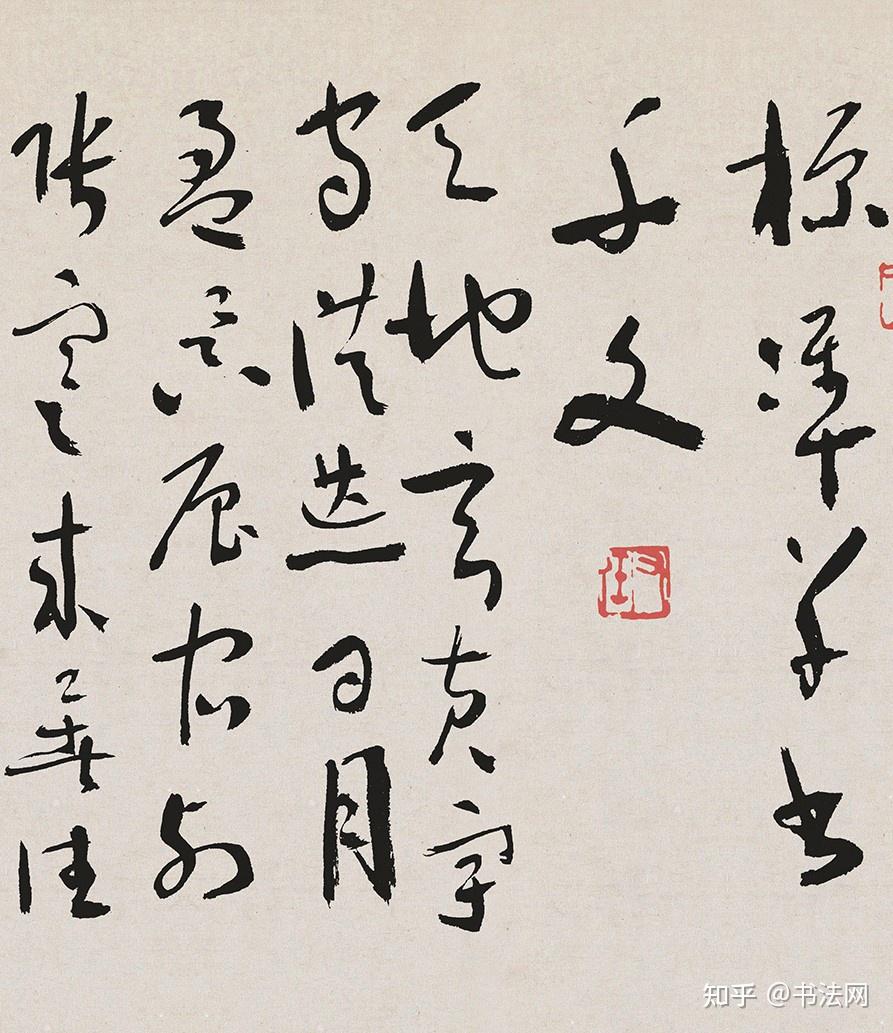 标准草书
千文
天地玄黄宇
宙洪荒日月
盈昃辰宿列
张寒来暑往
知乎 @书法网